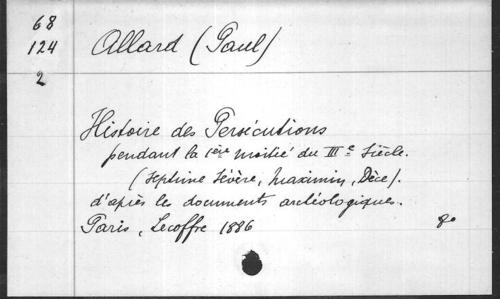 68
124
2
Allard (Paul)
Histoire des Persécutions
pendant la 1ère moitié du IIIe Siècle.
(Septime Sévère, Maximin, Dèce).
d'après le documents archéologiques.
Paris, Lecoffre 1886
8o